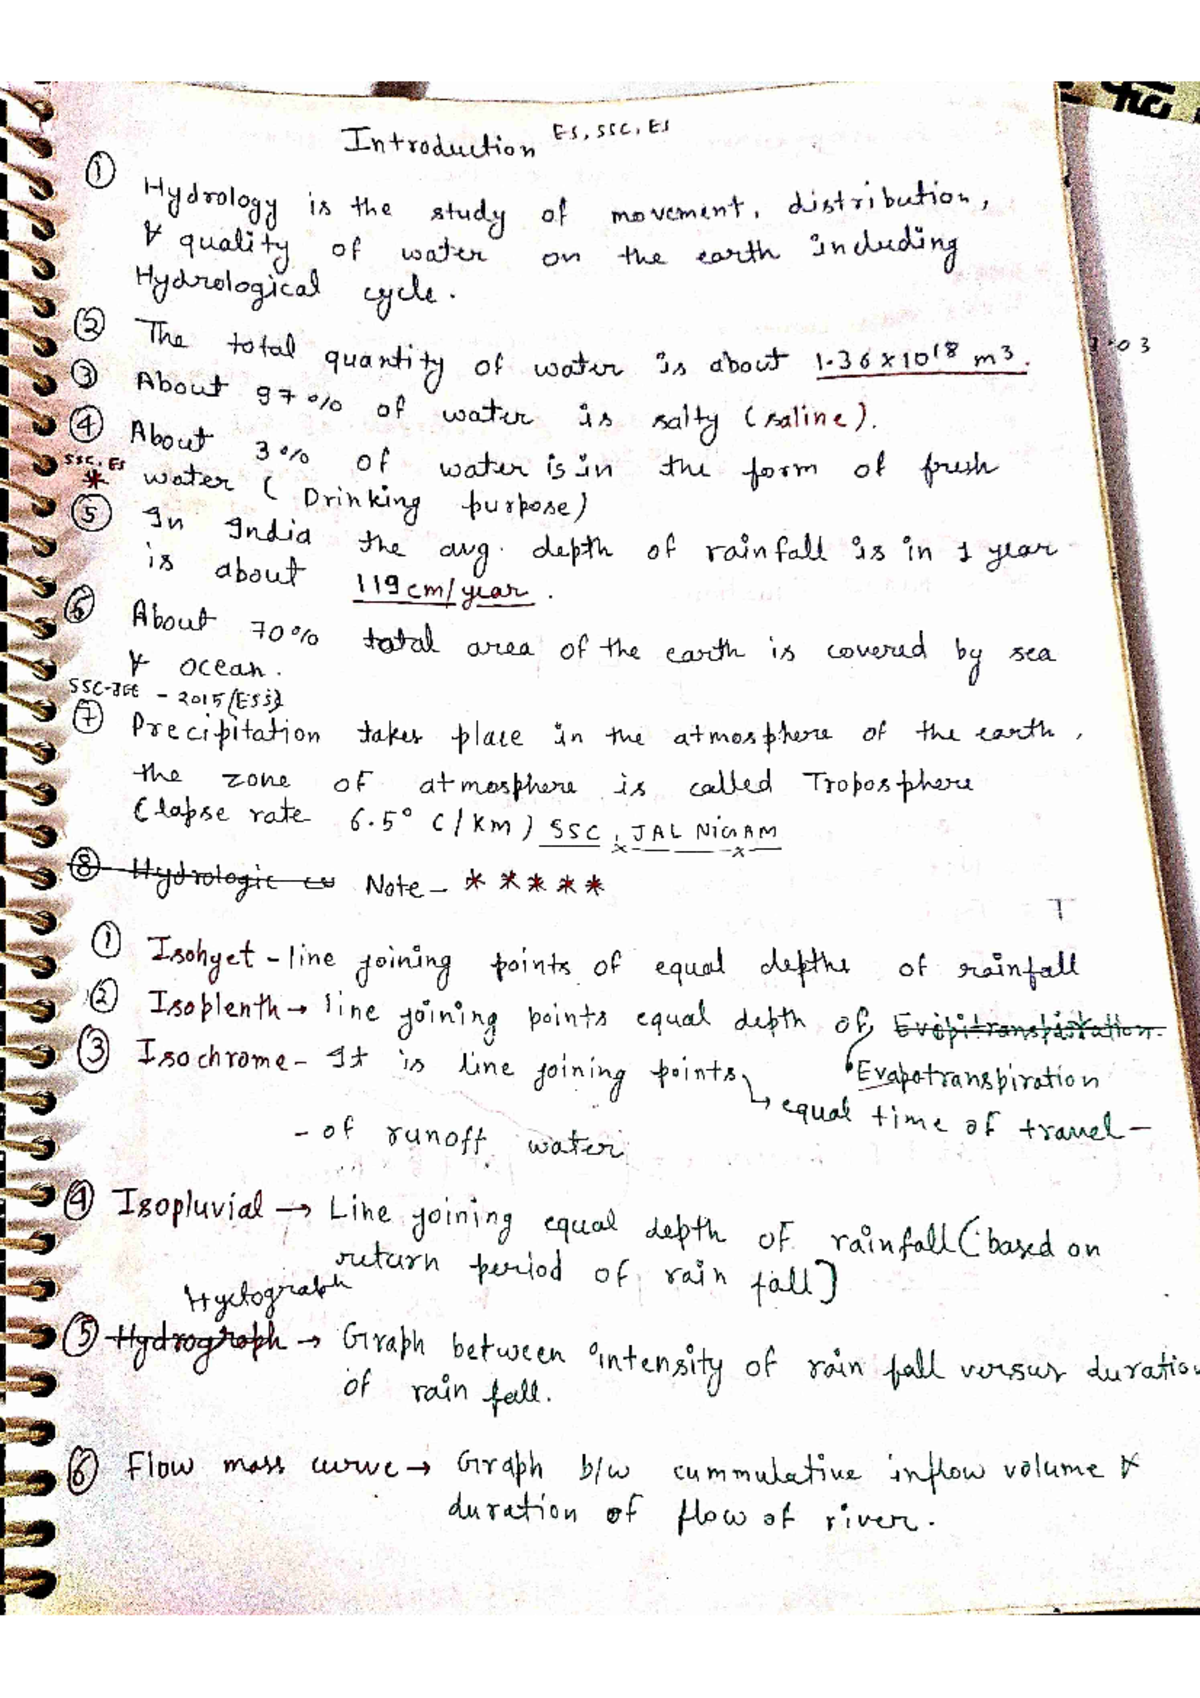 Introduction ES, SSC, ES
① Hydrology is the study of movement, distribution,
& quality of water on the earth including
Hydrological cycle.
② The total quantity of water is about 1.36×10¹⁸ m³.
③ About 97% of water is salty (saline).
④ About 3% of water is in the form of fresh
SSC, ES
* water ( Drinking purpose)
⑤ In India the avg. depth of rainfall is in 1 year
is about 119 cm/year.
⑥ About 70% total area of the earth is covered by sea
& ocean.
SSC-JEE - 2015
⑦ Precipitation takes place in the atmosphere of the earth,
the zone of atmosphere is called Troposphere
(lapse rate 6.5° C/Km) SSC, JAL NIGAM
⑧ Hydrologic Note - * * * * *
① Isohyet - line joining points of equal depths of rainfall
② Isoplenth → line joining points equal depth of Evepitranspiration.
Evapotranspiration
③ Isochrome - It is line joining points
→ equal time of travel -
- of runoff water
④ Isopluvial → Line joining equal depth of rainfall (based on
return period of rain fall)
Hyetograph
⑤ Hydrograph → Graph between intensity of rain fall versus duration
of rain fall.
⑥ Flow mass curve → Graph b/w cummulative inflow volume &
duration of flow of river.